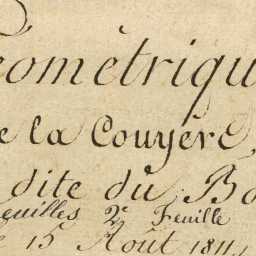 éométriqu
e la Couyère
dite du Bo
euilles 2e Feuille
e 15 Août 1811